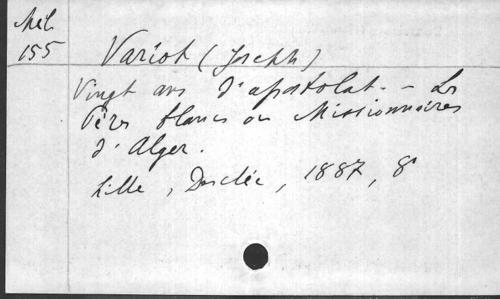 Mél.
155
Variot (Joseph)
Vingt ans d'apostolat. - Les
Pères blancs ou Missionnaires
d'Alger.
Lille, Desclée, 1887, 8°